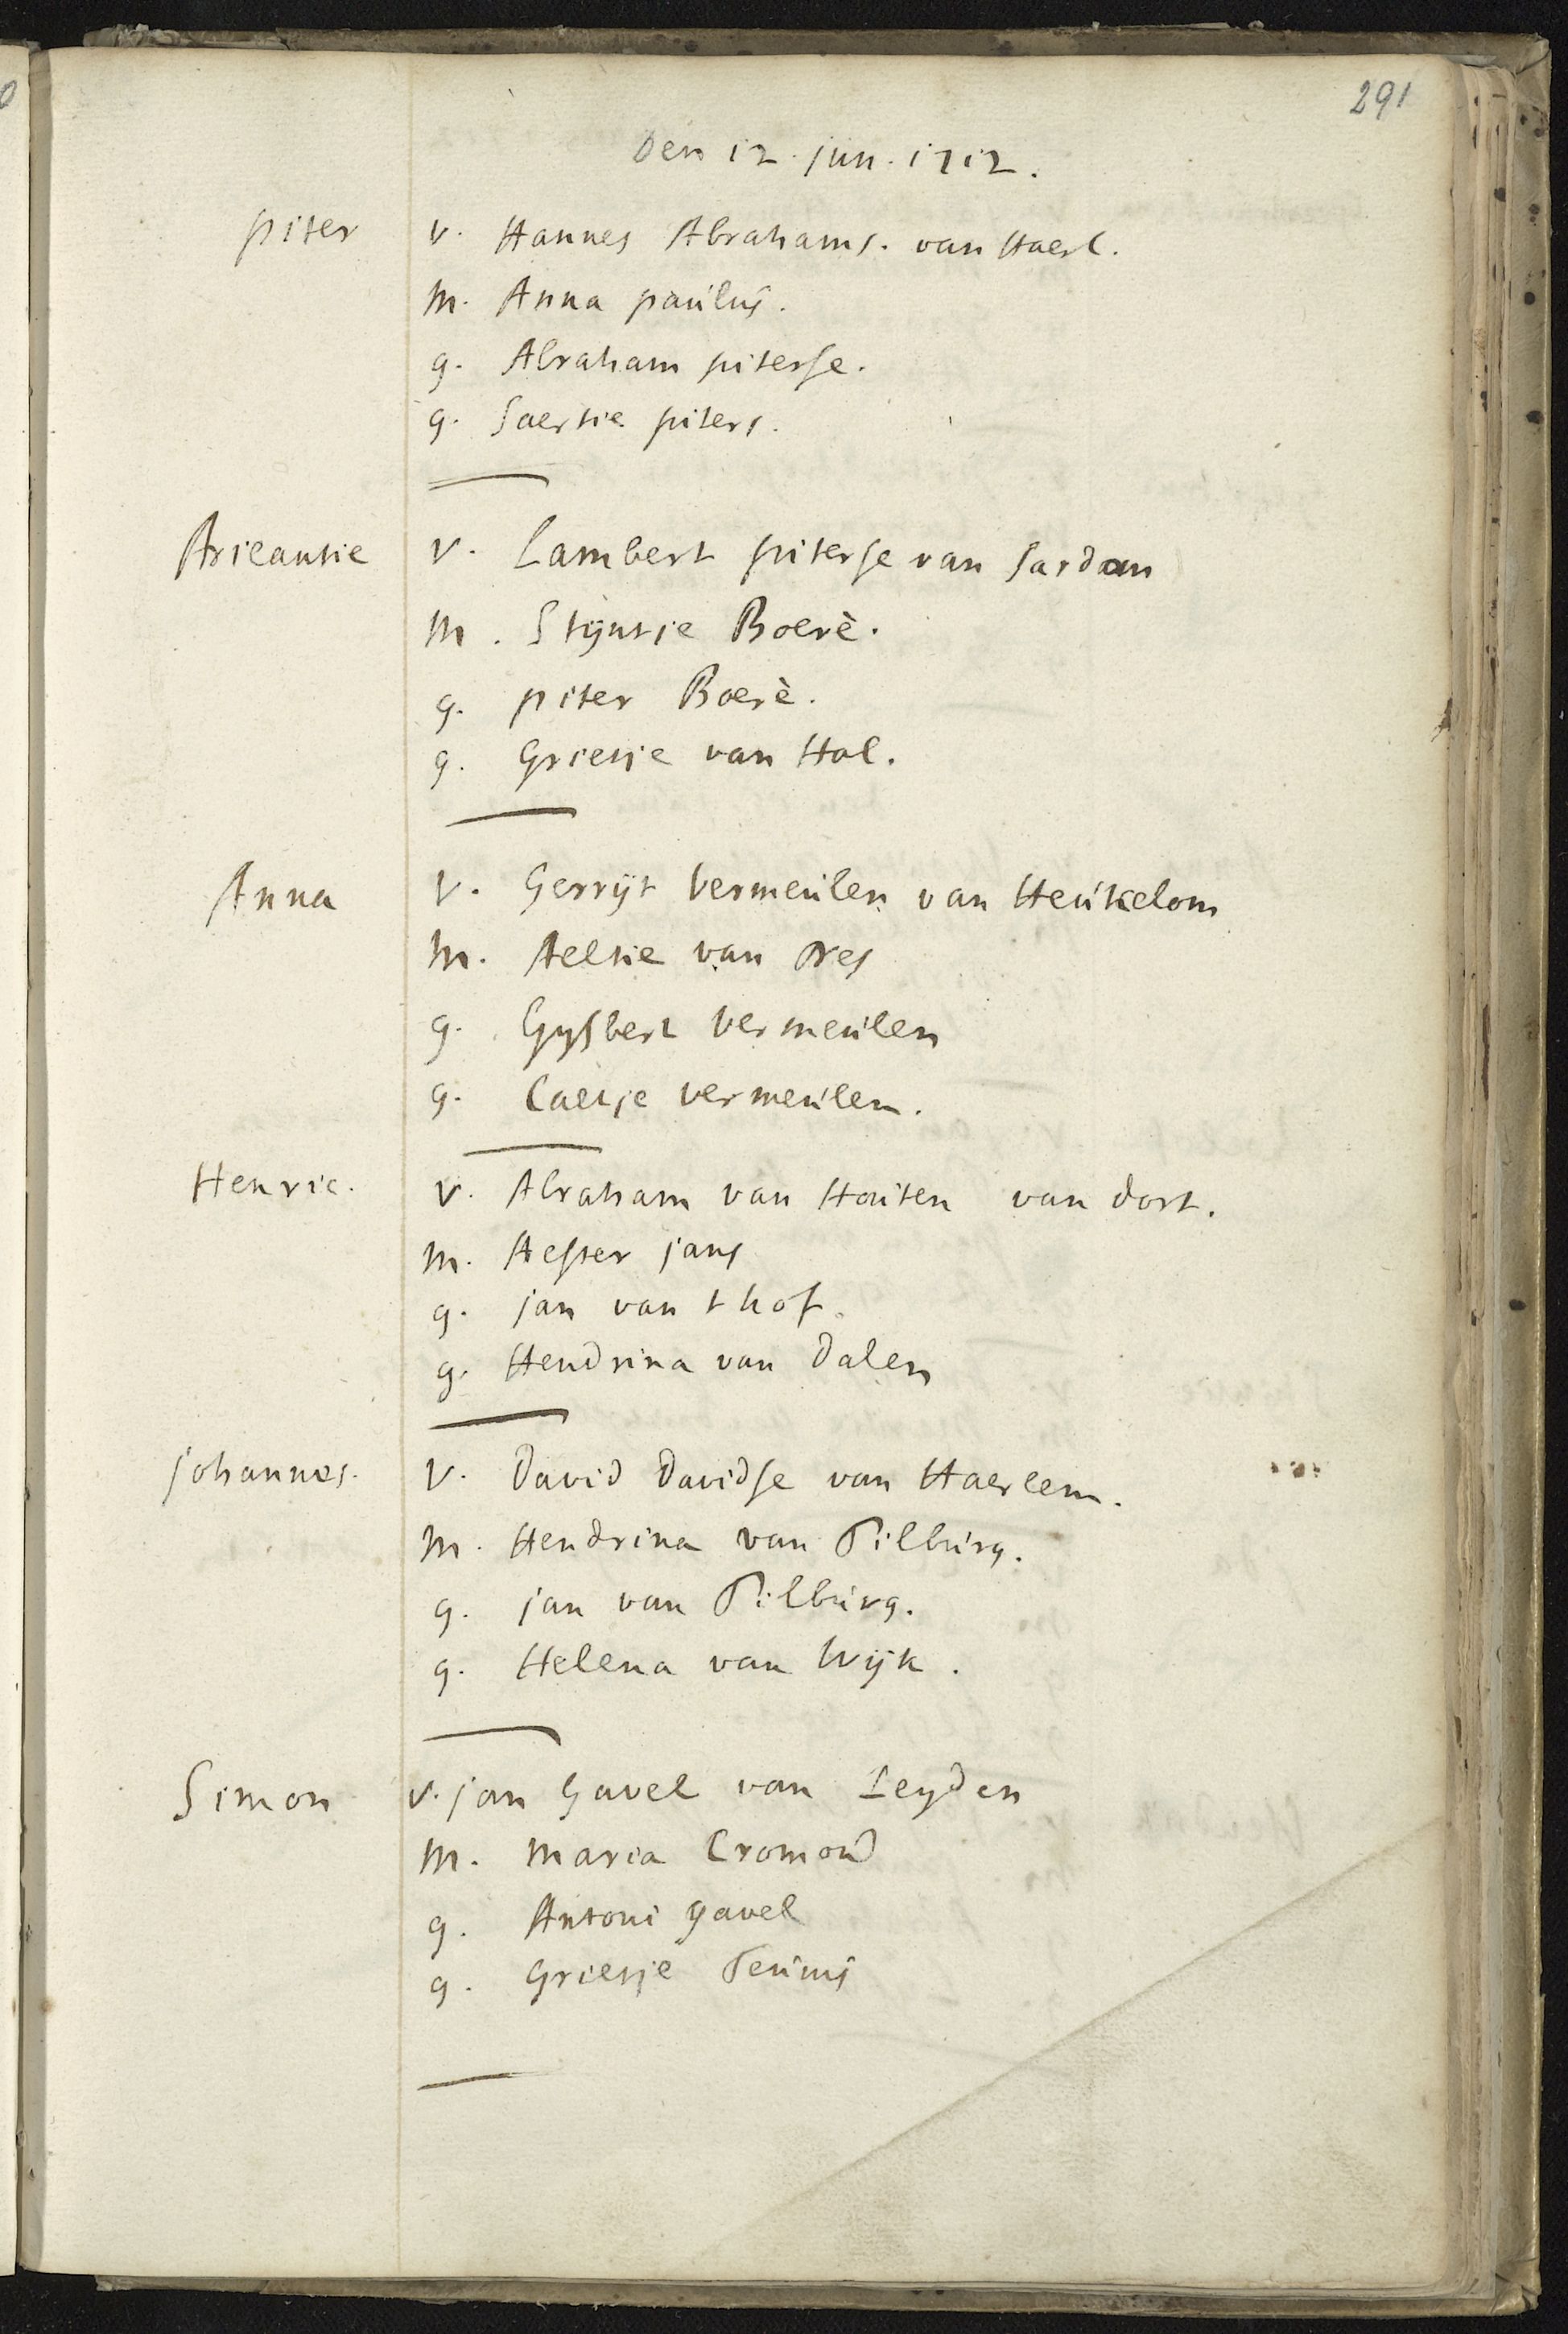 291
Den 12. jun. 1712.
piter v. Hannes Abrahams. van Haerl.
m. Anna paúlús.
g. Abraham piterse.
g. Saertie piters.
Arieantie v. Lambert piterse van Sardam
m. Stijntje Boerè.
g. piter Boerè.
g. Grietje van Hol.
Anna v. Gerrijt Vermeúlen van Heúkelom
m. Aeltie van Nes
g. Gysbert Vermeúlen
g. Caetje Vermeúlen.
Henric. v. Abraham van Hoúten van dort.
m. Hester jans
g. jan van t hof.
g. Hendrina van Dalen
johannes. v. David Davidse van Haerlem.
m. Hendrina van Tilbúrg.
g. jan van Tilbúrg.
g. Helena van Wijk.
Simon v. jan Gavel van Leyden
m. Maria Cromoú
g. Antoni Gavel
g. Grietje Teúnis